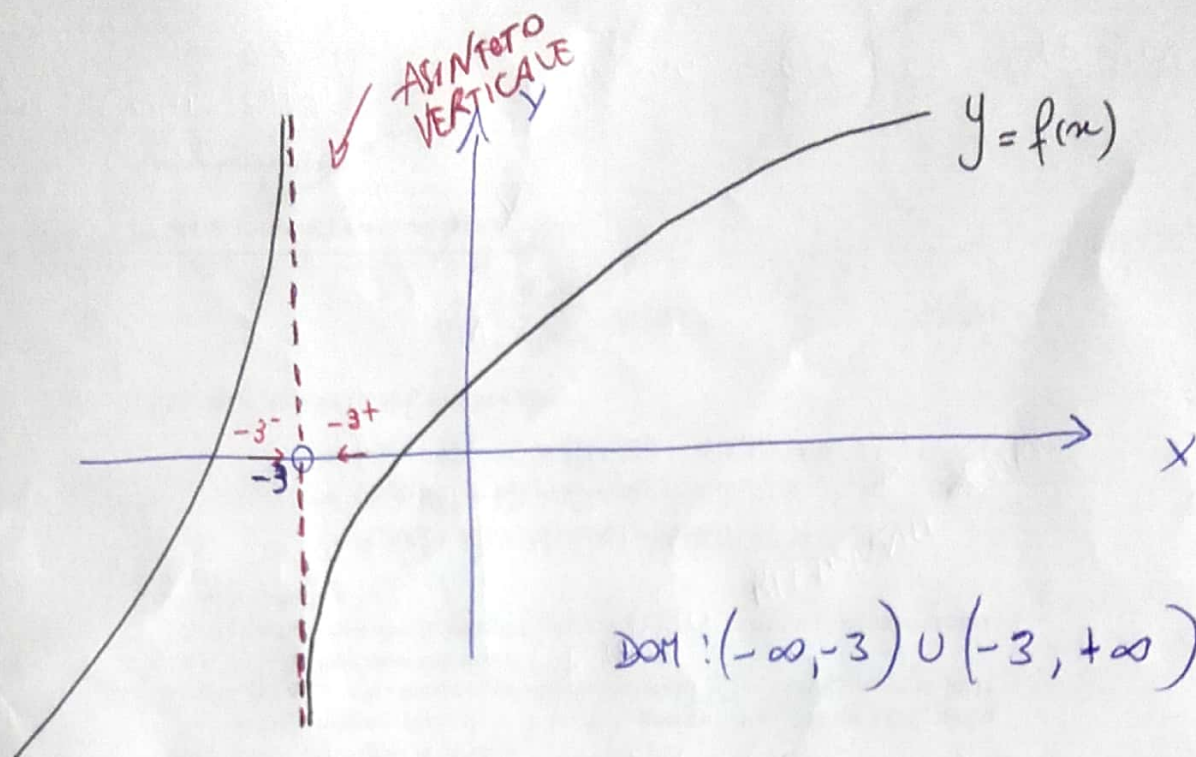 ASINTOTO
VERTICALE
y
y = f(x)
-3⁻
-3⁺
-3
x
DOM : (-∞,-3) ∪ (-3, +∞)